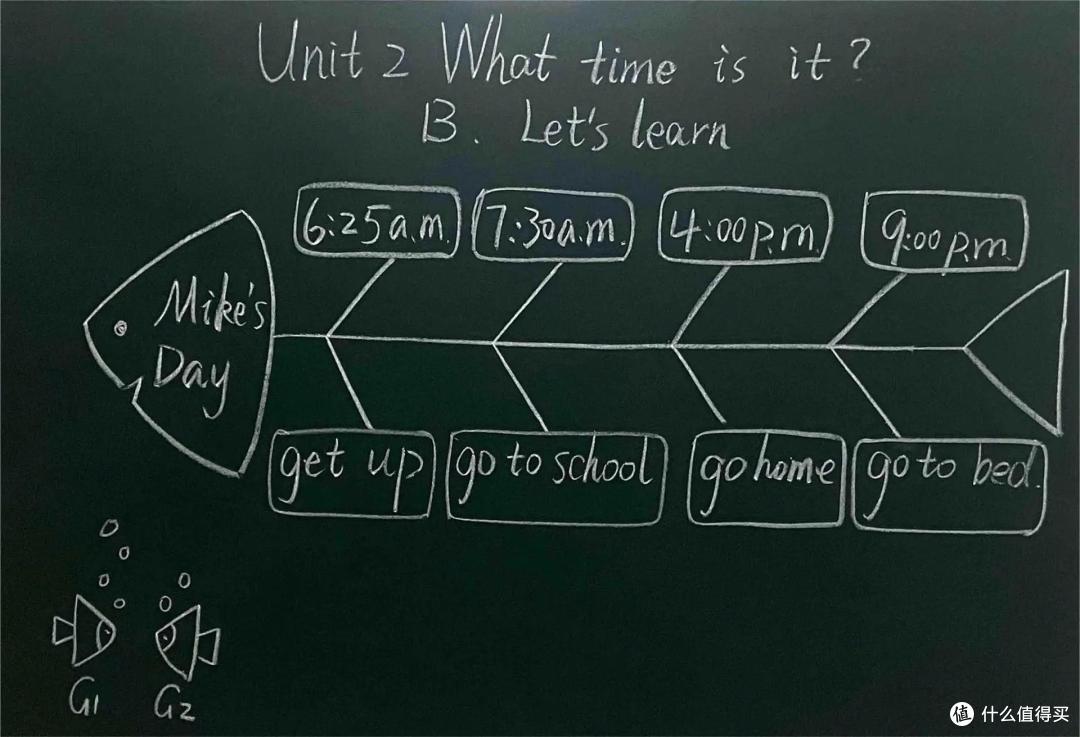 Unit 2 What time is it?
B. Let's learn
6:25a.m. 7:30a.m. 4:00p.m. 9:00p.m.
Mike's
Day
get up go to school go home go to bed.
G1 G2
值 什么值得买